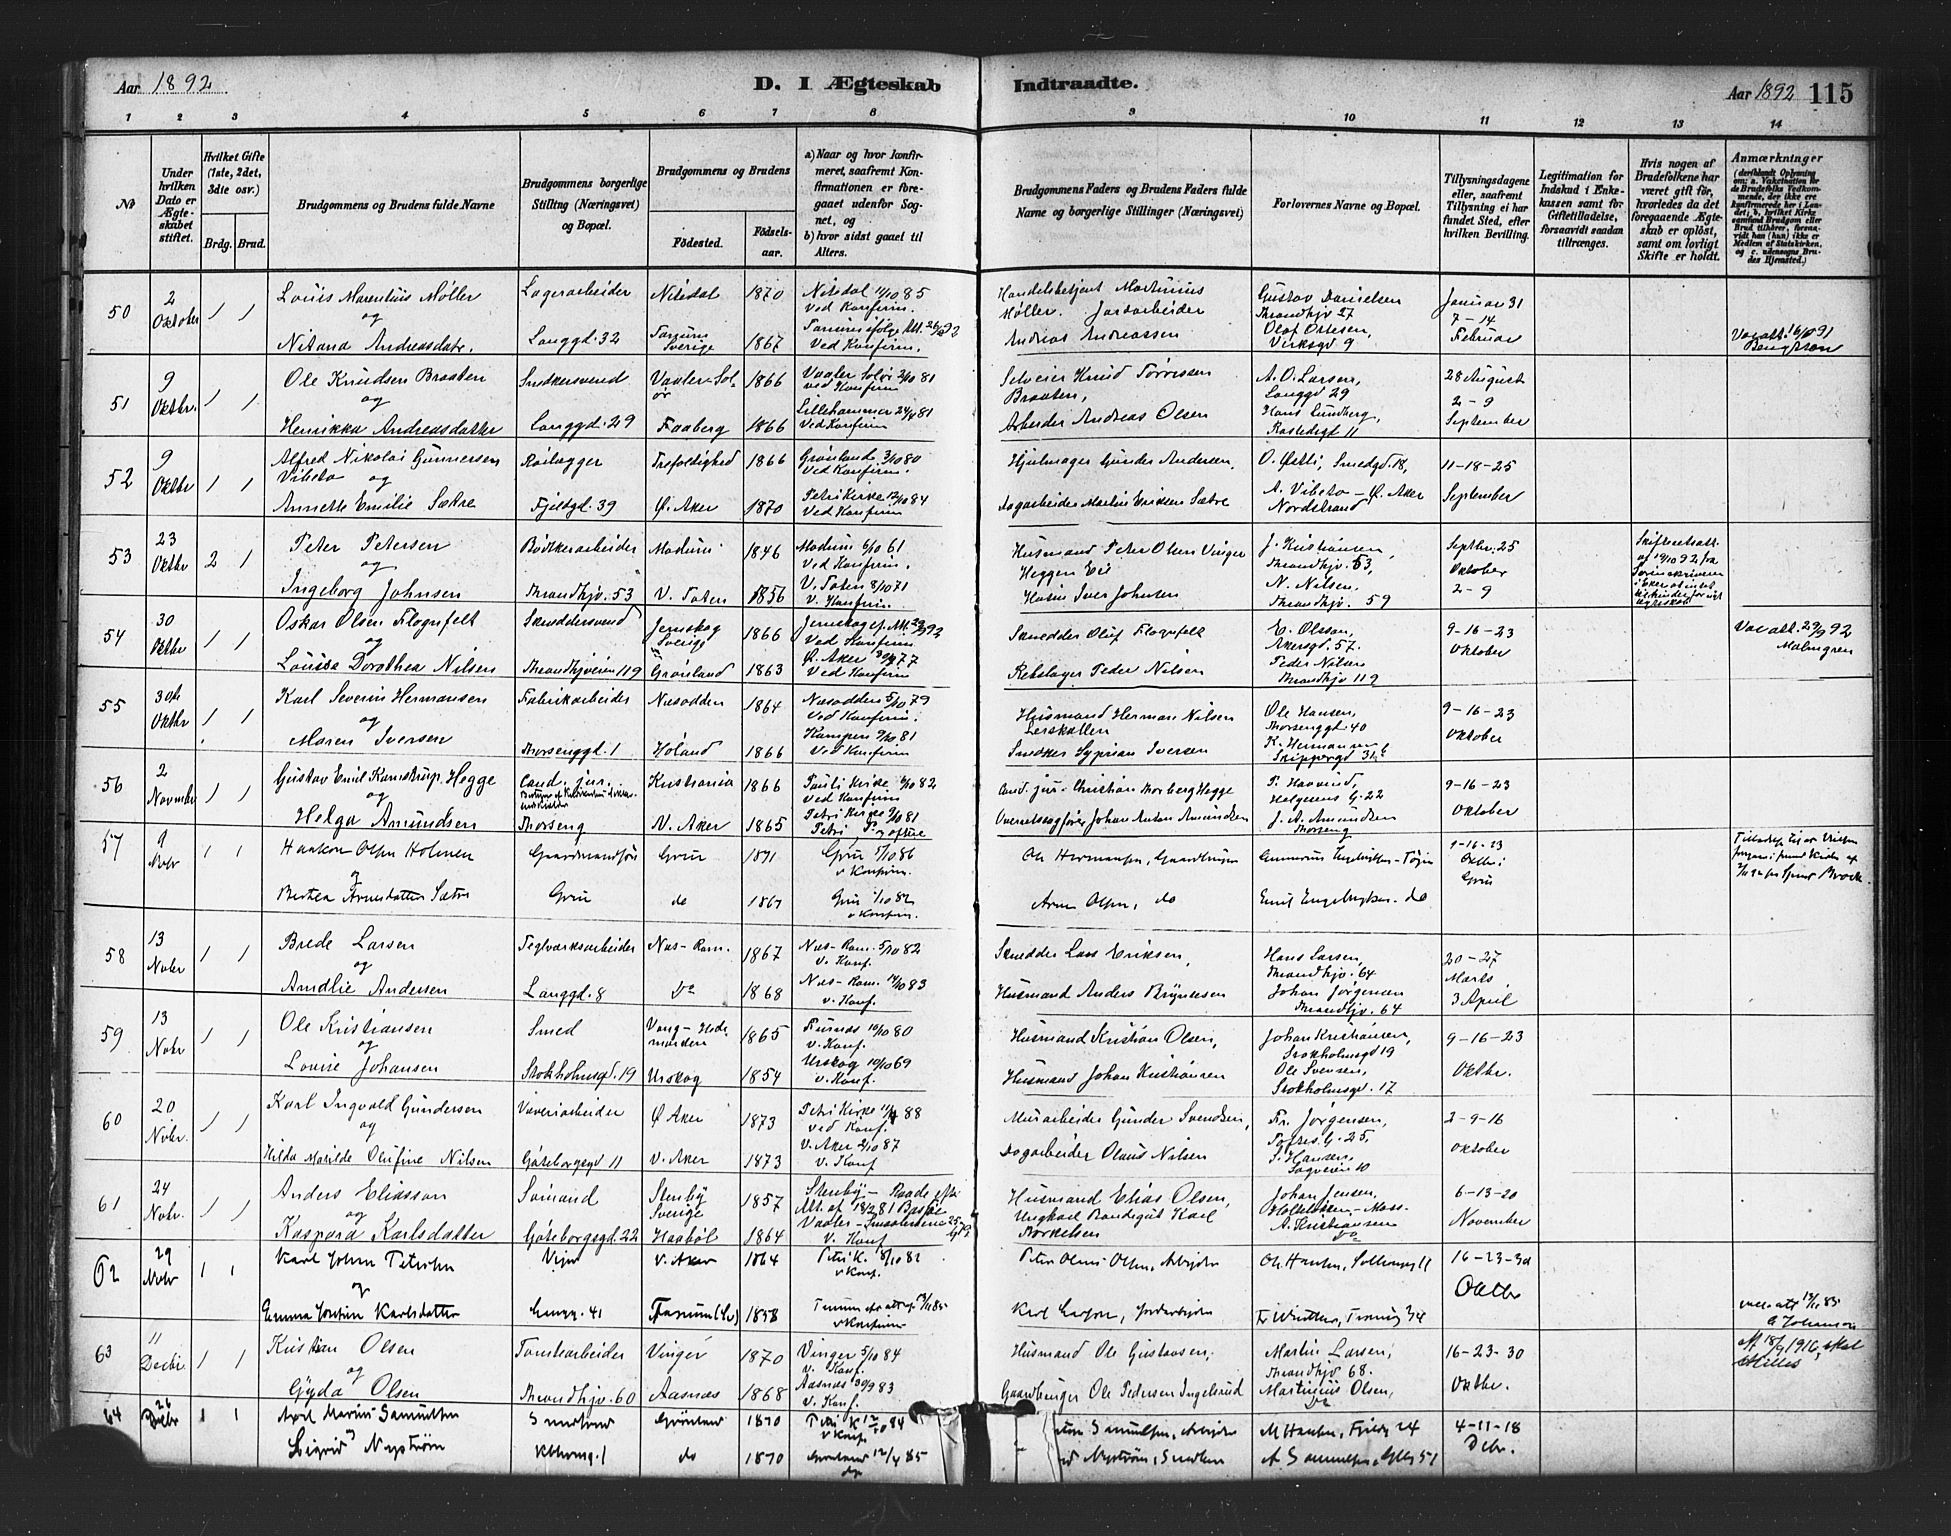 Aar 1892
D. I Ægteskab Indtraadte.
Aar 1892 115
1 2 3 4 5 6 7 8 9 10 11 12 13 14
No
Under hvilken Dato er Ægteskabet stiftet.
Hvilket Gifte (1ste, 2det, 3die osv.)
Brdg. Brud.
Brudgommens og Brudens fulde Navne
Brudgommens borgerlige Stilling (Næringsvei) og Bopæl.
Brudgommens og Brudens
Fødested. Fødselsaar.
a) Naar og hvor konfirmeret, saafremt Konfirmationen er foregaaet udenfor Sognet, og
b) hvor sidst gaaet til Alters.
Brudgommens Faders og Brudens Faders fulde Navne og borgerlige Stillinger (Næringsvei)
Forlovernes Navne og Bopæl.
Tillysningsdagene eller, saafremt Tillysning ei har fundet Sted, efter hvilken Bevilling.
Legitimation for Indskud i Enkekassen samt for Giftetilladelse, forsaavidt saadan tiltrænges.
Hvis nogen af Brudefolkene har været gift før, hvorledes da det foregaaende Ægteskab er opløst, samt om lovligt Skifte er holdt.
Anmærkninger
50 2 Oktober 1 1
Louis Marentius Møller Lagerarbeider Nitedal 1870 Nitedal 11/10 85 Ved Konfirm.
og
Nitana Andreasdatr. Langgd. 32 Tanum Sverige 1867 Ved Konfirm.
Handelsbetjent Martinius Møller. Jordarbeider
Andreas Andreassen
Gustav Danielsen Throndhjv 27
Olaf Ottesen, Verksgd 9
Januar 31 7-14 Februar
Bengtson
51 9 Oktbr. 1 1
Ole Knudsen Braaten Snedkersvend Vaaler-Solør 1866 Vaaler Solør 2/10 81 ved Konfirm
og
Henrikka Andreasdatter Langgd. 29 Faaberg 1866 Lillehammer 24/4 81 Ved Konfirm
Selveier Knud Torressen Braaten,
Arbeider Andreas Olsen
A. O. Larsen, Langgd 29
Hans Lundberg, Rostedsgt 11
28 August 2-9 September
52 9 Oktbr 1 1
Alfred Nikolai Gunnersen Vibeto Reilægger Trefoldighed 1866 Grønland 3/10 80 Ved Konfirm.
og
Annette Emilie Sætre Fjeldgd. 39 Ø. Aker 1870 Petri Kirke 12/10 84 Ved Konfirm
Hjulmager Gunder Andersen,
Dagarbeider Martin Eriksen Sætre
O. Østli, Smedgd. 18,
A. Vibeto - Ø. Aker Nordstrand
11-18-25 September
53 23 Oktbr 2 1
Peter Petersen Bødkerarbeider Modum 1846 Modum 6/10 61 Ved Konfirm.
og
Ingeborg Johnsen Throndhjv. 53 V. Toten 1856 V. Toten 8/10 71 V. Konfirm
Husmand Peter Olsen Vinger Heggen Eie
Husm Iver Johnsen
J. Kristiansen, Throndhjv. 53,
N. Nilsen, Throndhjv. 59
Septbr. 25 Oktober 2-9
54 30 Oktbr 1 1
Oskar Olsen Flognfelt Skræddersvend Jernskog Sverige 1866 Ved Konfirm
og
Louise Dorothea Nilsen Throndhjveien 119 Grønland 1863 Ø. Aker 30/9 77 Ved Konfirm
Skrædder Oluf Flognfelt
Rebslager Peder Nilsen
E. Olsson, Akersgd. 57.
Peder Nilsen Throndhjv 119
9-16-23 Oktober
Vac att. 29/9 92 Malmgren
55 30te Oktbr 1 1
Karl Severin Hermansen Fabrikarbeider Næsodden 1864 Næsodden 5/10 79 Ved Konfirm.
og
Maren Iversen Thorsenggd. 1 Høland 1866 Kampen 9/10 81 Ved Konfirm
Husmand Herman Nilsen Lerskallen
Snedker Syprian Iversen
Ole Hansen, Thorsenggd. 40
K. Hermansen Skippergd 31
9-16-23 Oktober
56 2 November 1 1
Gustav Emil Kamstrup Hegge Cand. jur. Kristiania 1866 Pauli Kirke 1/10 82 ved Konfirm
og
Helga Amundsen Thorseng V. Aker 1865 Petri Kirke 9/10 81
Cand. jur. Christian Thorberg Hegge
Overretssagfører Johan Anton Amundsen
Helgesens G. 22
J. A. Amundsen Thorseng
9-16-23 Oktober
57 9 Nobr 1 1
Haakon Olsen Holmen Gaardmandssøn Grue 1871 Grue 5/10 86 v Konfirm.
og
Berthea Arnesdatter Sætre Grue do 1867 Grue 1/10 82 v Konfirm.
Ole Hermansen, Gaardbruger
Arne Olsen, do
Emil Engebretsen. do
9-16-23 Oktbr i Grue
58 13 Nobr 1 1
Brede Larsen Teglværksarbeider Næs-Rom. 1867 Næs-Rom. 5/10 82 v. Konf.
og
Amalie Andersen Langgd. 8 Do 1868 Næs-Rom. 14/10 83 v. Konf.
Skrædder Lars Eriksen,
Husmand Anders Bryntesen
Hans Larsen, Throndhjv. 64
Johan Jørgensen Throndhjv. 64
20-27 Marts 3 April
59 13 Nobr 1 1
Ole Kristiansen Smed Vang-Hedemarken 1865 Furnæs 10/10 80 v. Konf.
og
Lovise Johansen Stokholmsgd. 19 Urskog 1854 Urskog 10/10 69 v. Konf.
Husmand Kristian Olsen,
Husmand Johan Kristiansen
Johan Kristiansen, Stokholmsgd 19
Ole Svensen, Stokholmsgd. 17
9-16-23 Oktbr.
60 20 Nobr. 1 1
Karl Ingvald Gundersen Væveriarbeider Ø Aker 1873 Petri Kirke 11/4 88 ved Konf.
og
Hilda Matilde Olufine Nilsen Gøteborgsgd 11 V. Aker 1873 V. Aker 2/10 87 v. Konf
Murarbeider Gunder Svendsen,
Dagarbeider Olaus Nilsen
Fr. Jørgensen, Toftes G. 25,
P. Hansen, Sagveien 10
2-9-16 Oktober
61 24 Nobr. 1 1
Anders Eliasson Sømand Stenby Sverige 1857
og
Kaspara Karlsdatter Gøteborgsgd. 22 Haabøl 1864 V. Konf
Husmand Elias Olsen,
Ungkarl Bondegut Karl Borkelsen
Johan Jensen, - Moss.
A. Kristiansen Do
6-13-20 November
62 29 Nobr 1 1
Karl Johan Petersen V. Aker 1864 Petri K. 8/10 82 v Konf.
og
Emma Josefine Karlsdatter Langg. 41 Tanum (Sv) 1858 v Konfirm
Peter Olaus Olsen, Arbeider
Karl Larsen, Jordarbeider
16-23-30 Oktbr
vac. att 13/11 85 Johanson
63 11 Decbr. 1 1
Kristian Olsen Tomtearbeider Vinger 1870 Vinger 5/10 84 v. Konf.
og
Gyda Olsen Throndhjv. 60 Aasnæs 1868 Aasnæs 30/9 83 v. Konf.
Husmand Ole Gustavsen,
Gaardbruger Ole Pedersen Ingelsrud
Martin Larsen, Throndhjv 68.
Martinius Olsen, Do
16-23-30 Oktbr.
64 26 Decbr 1 1
Axel Marius Samuelsen Grønland 1870 Petri K 12/10 84 v Konf.
og
Sigrid Nystrøm do 1870 Grønland 12/4 85 do
Samuelsen, Arbeider
Nystrøm, Snedker
M Hansen, Fjeldg 24
A Samuelsen, 51
4-11-18 Debr.